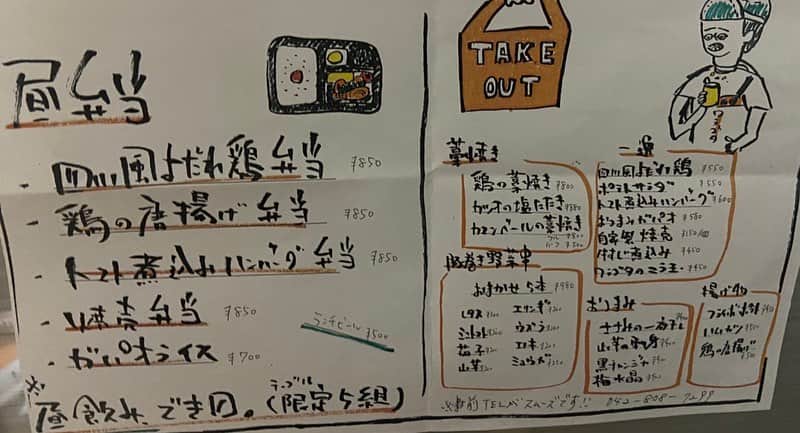 昼弁当
・四川風よだれ鶏弁当 ¥850
・鶏の唐揚げ弁当 ¥850
・トマト煮込みハンバーグ弁当 ¥850
・焼売弁当 ¥850
・ガパオライス ¥700
ランチビール ¥500
※昼飲みできます。(限定5組)
テーブル
TAKE
OUT
藁焼き
鶏の藁焼き ¥800
カツオの塩たたき ¥880
カマンベールの藁焼き
フル ¥800
ハーフ ¥500
豚巻き野菜串
おまかせ5本 ¥980
レタス
エリンギ
ミニトマト
ウズラ
茄子
エノキ
山芋
ミョウガ
一週
四川風よだれ鶏 ¥550
ポテトサラダ ¥550
トマト煮込みハンバーグ ¥600
おつまみガパオ ¥580
自家製焼売 ¥150/個
¥450
¥450
おつまみ
山芋の
黒チャンジャ
梅水晶
揚げ物
フライドポテト
ハムカツ
鶏の唐揚げ
※事前TELがスムーズです!! 042-808-7299